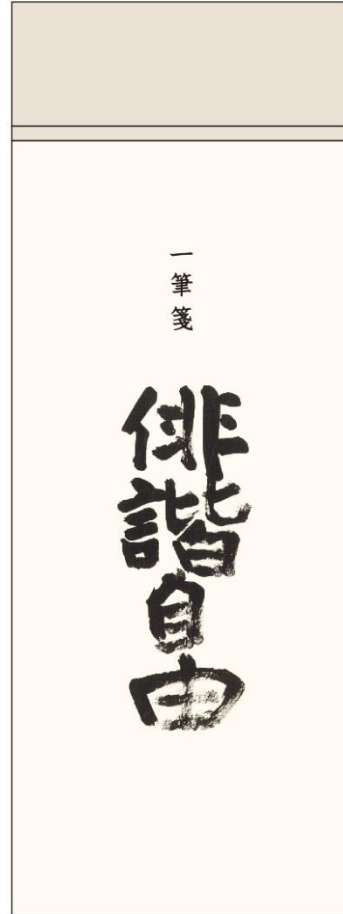 一筆箋
俳諧自由